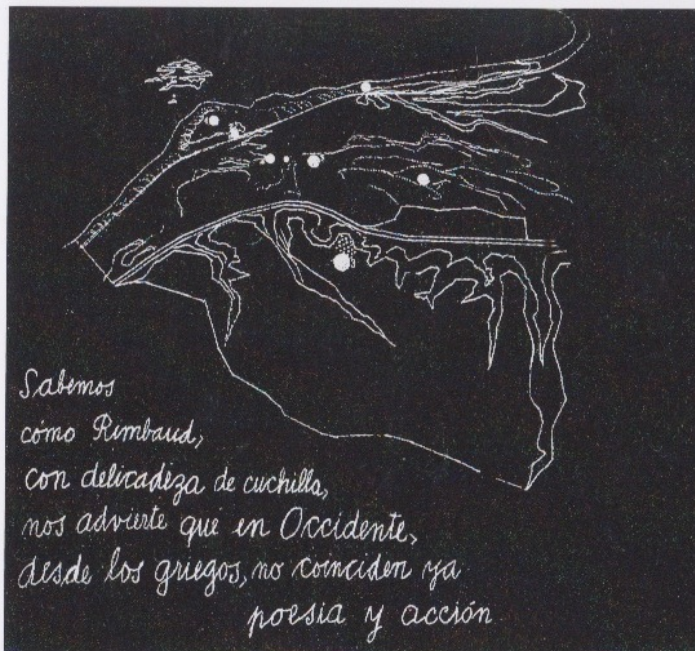 Sabemos
cómo Rimbaud,
con delicadeza de cuchillo,
nos advierte que en Occidente,
desde los griegos, no coinciden ya
poesía y acción